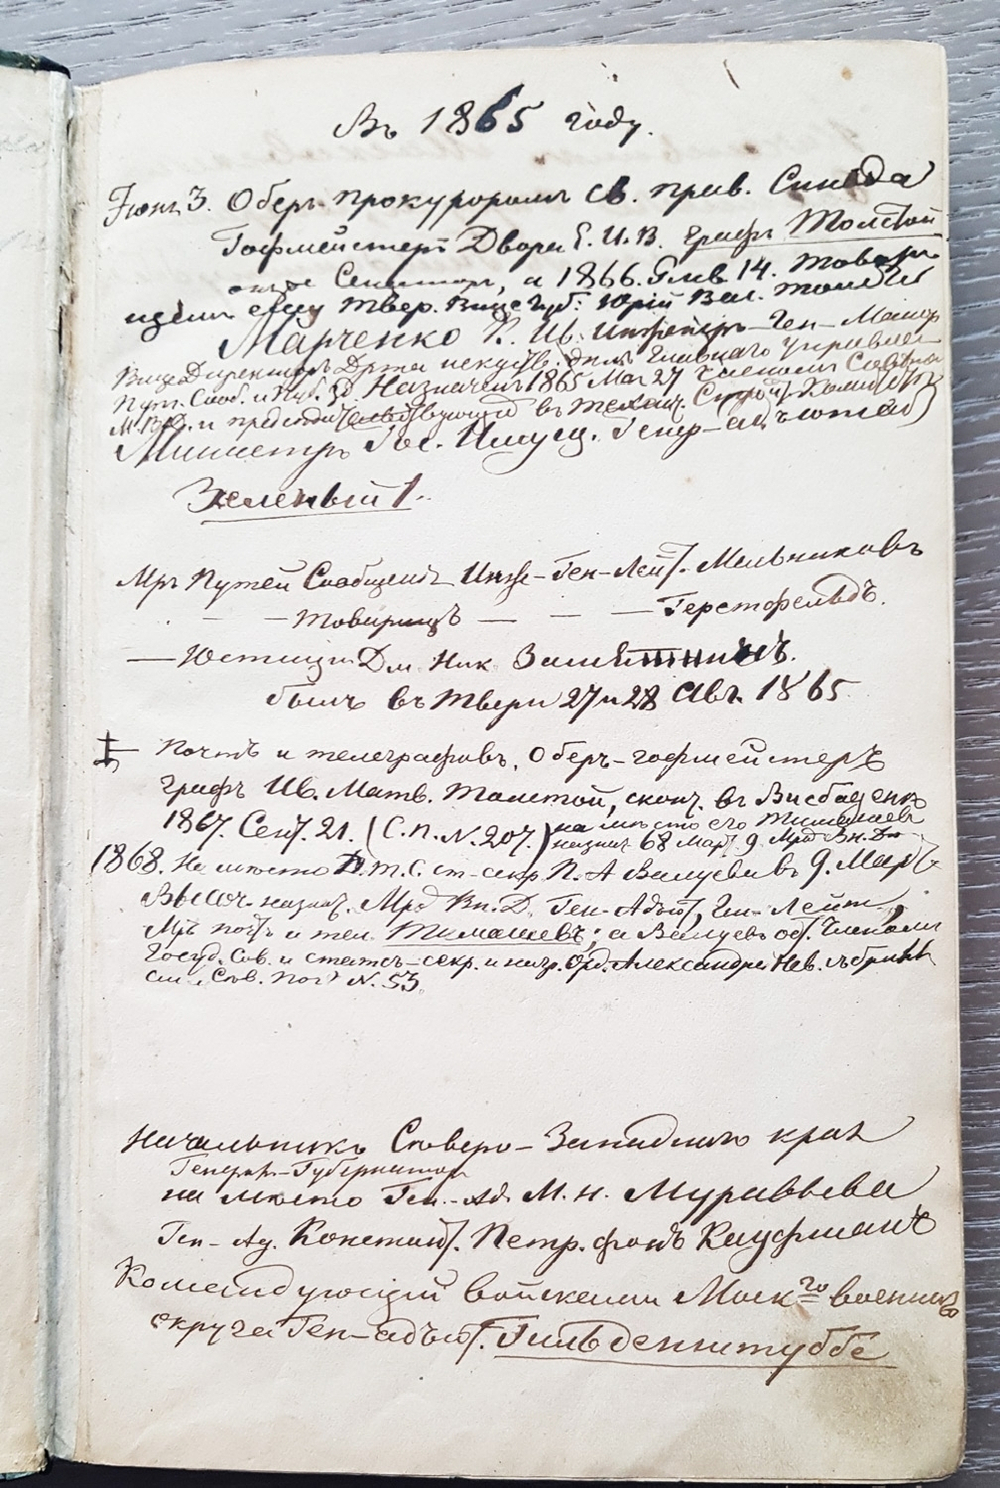 Въ 1865 году.
Іюнь 3. Оберъ-прокуроромъ Св. прав. Синода
Гофмейстеръ Двора Е. И. В. графъ Толстой
Сенаторъ, а 1866. Янв 14. Товар
ищемъ ему Твер. Вице Губ. Юрій Вас. Толстой
Марченко К. Ив. Инженеръ-Ген-Маіоръ
Вице Директоръ Д-рта искуств. дѣлъ Главнаго Управлен
Пут. Сооб. и Пуб. Зд. Назначенъ 1865 Мая 27 Членомъ Совѣта
и предсѣдательствующій въ Технич. Строит. Комит
Министръ Гос. Имущ. Генер-адъютант
Зеленый 1.
Мръ Путей Сообщенія Инже-Ген-Лейт. Мельниковъ
— — Товарищъ — — — Герстфельдъ.
— Юстиціи Дм. Ник Замятнинъ.
былъ въ Твери 27 и 28 Авг. 1865
Почтъ и телеграфовъ, Оберъ-гофмейстеръ
графъ Ив. Матв. Толстой, сконч. въ Висбаденѣ
1867. Сент. 21. (С. п. N. 207.) на мѣсто его Тимашевъ
назнач 68 Март 9 Мрд Вн. Дл
1868. На мѣсто Д. Т. С. ст-секр П. А Валуева въ 9. Март
Высоч. назнач. Мрд Вн. Д. Ген-Адъют, Ген-Лейт.
Мръ почтъ и тел. Тимашевъ; а Валуевъ Членомъ
Госуд. Сов. и статсъ-секр. и нагр. Орд. Александра Нев. съ брил
Сѣв. Поч N. 53.
Начальникъ Сѣверо-Западнаго края
Генералъ-Губернаторъ
на мѣсто Ген.-Ад. М. Н. Муравьева
Ген-Ад. Констант. Петр. фонъ Кауфманъ
Командующій войсками Моск-го военнаго
округа Ген-адъют. Гильденштуббе